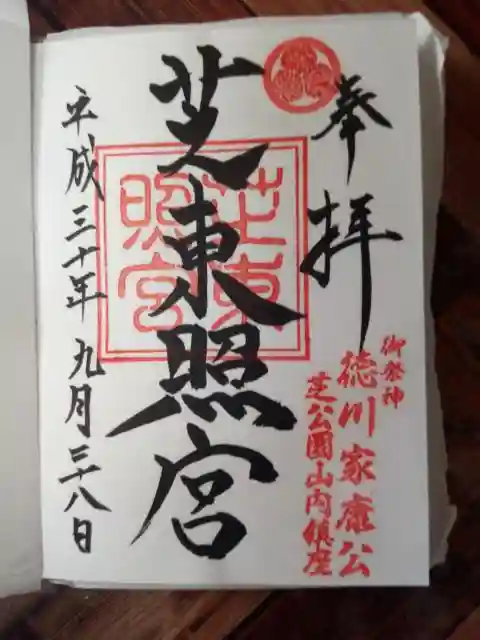 奉拝
御祭神
徳川家康公
芝公園山内鎮座
芝東照宮
芝東
照宮
平成三十年九月二十八日